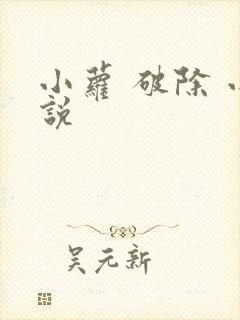 小蘿 破除
說
吴元新